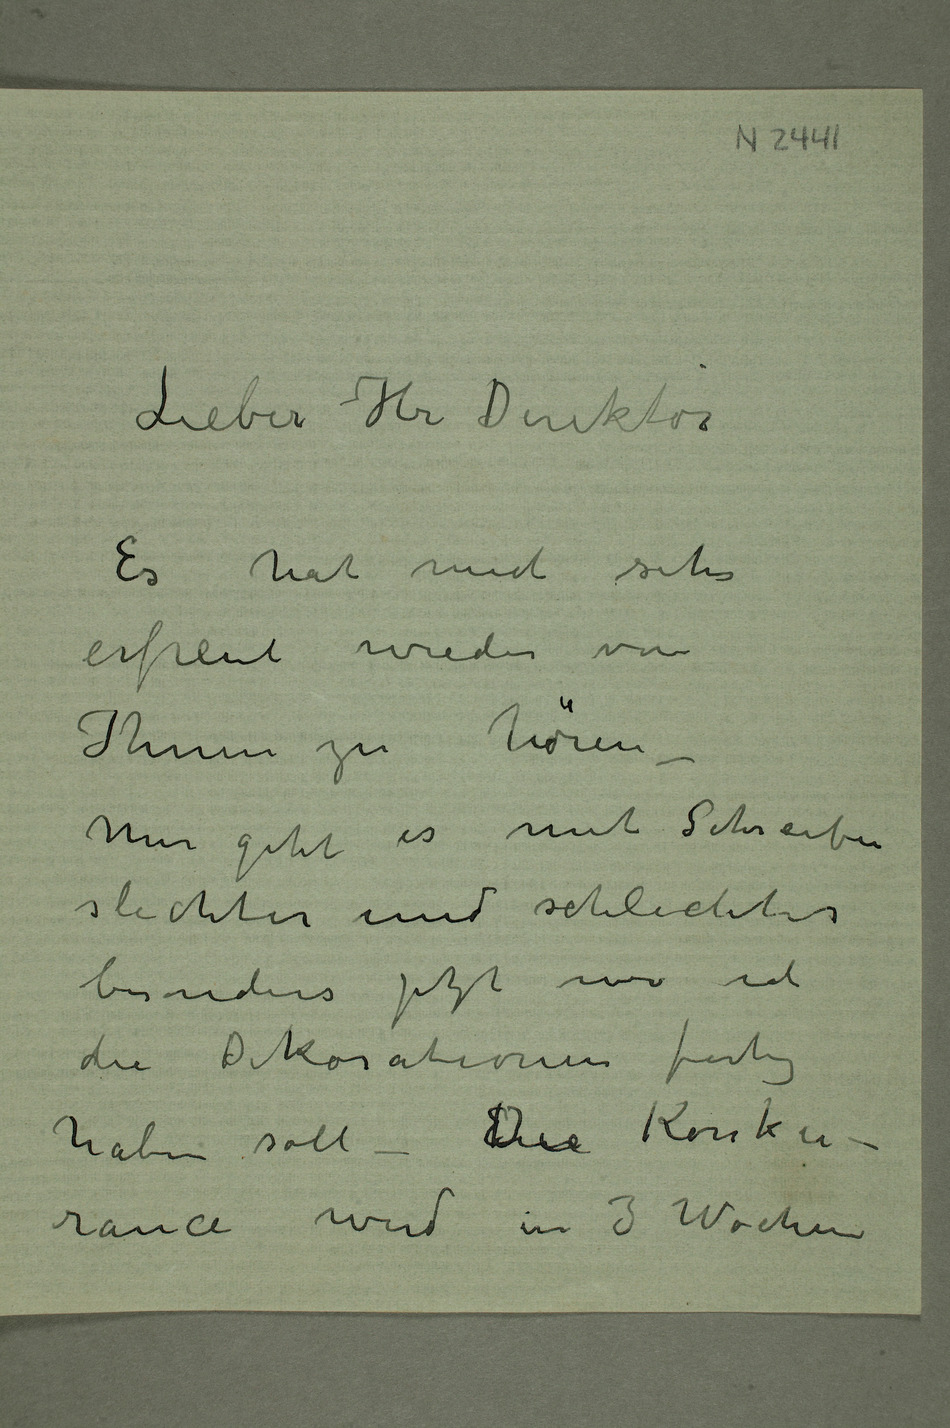 N 2441
Lieber Hr Direktor
Es hat mich sehr
erfreut wieder von
Ihnen zu hören_
Mir geht es mit Schreiben
slechter und schlechter
besonders jetzt wo ich
die Dekorationen fertig
haben soll _ Die Konku-
rance wird in 3 Wochen